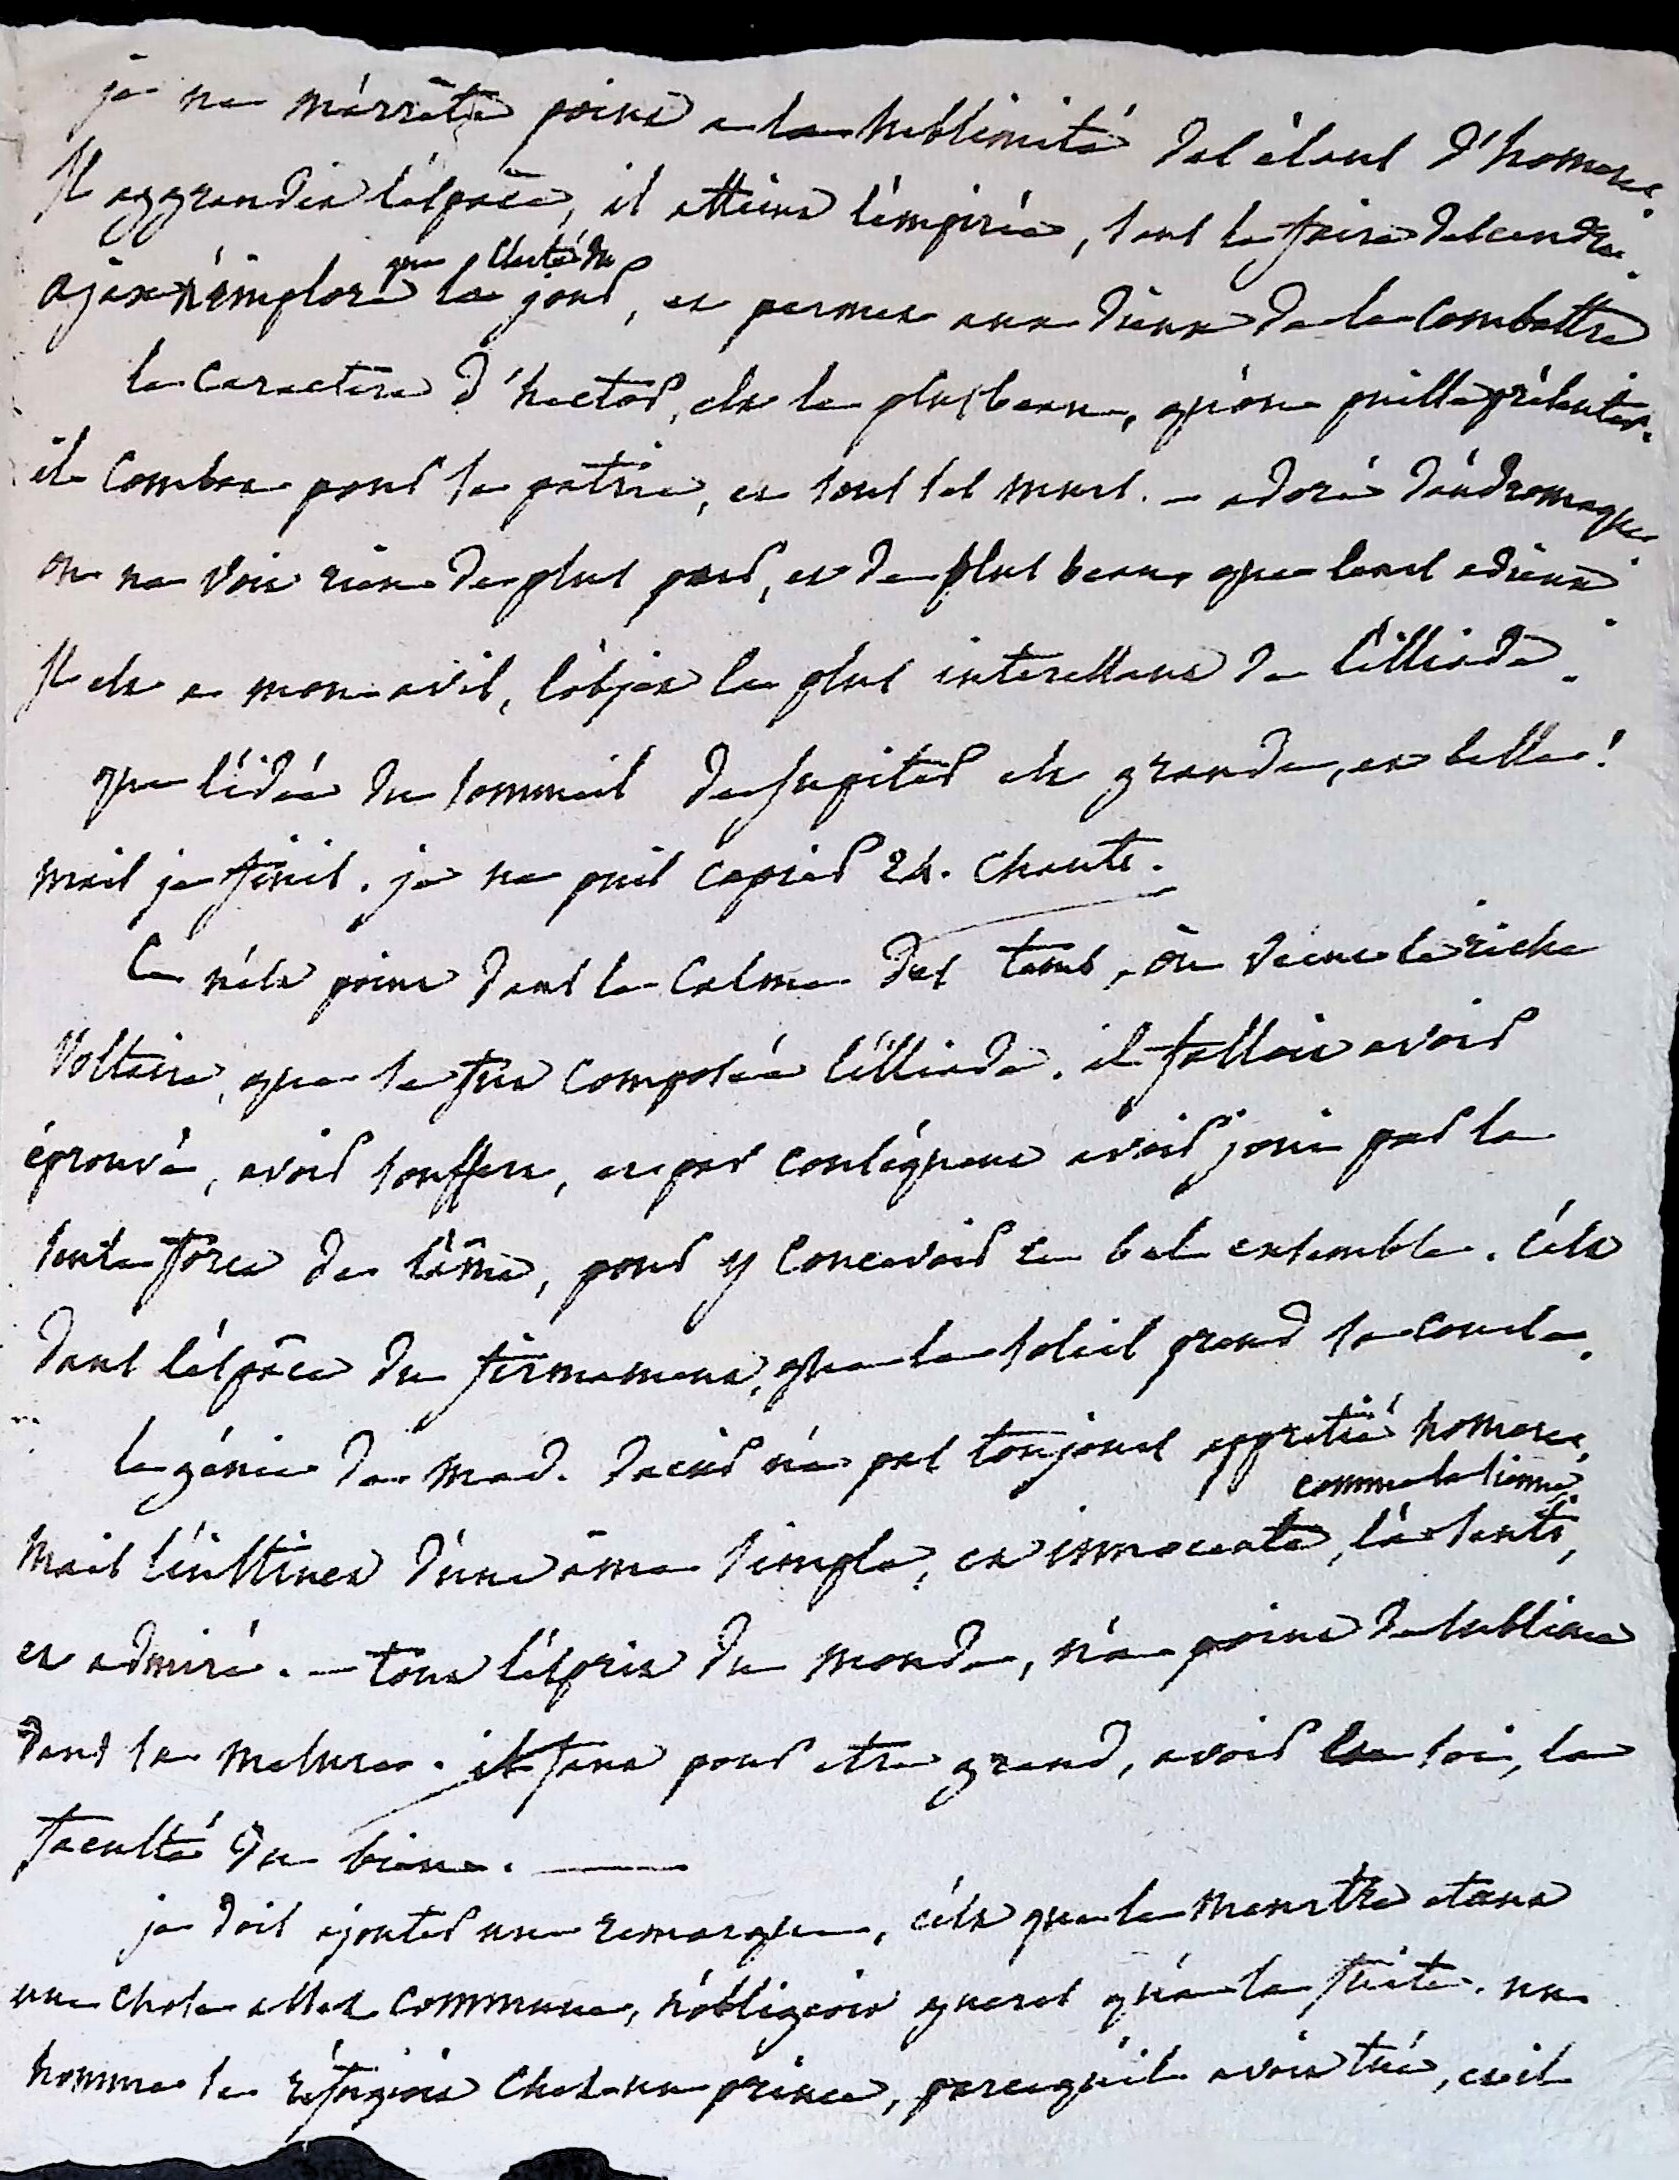 je ne m'arrête point a la sublimité des élans d'homere.
Il aggrandit l'éspace, il atteint l'empirée, sans le faire descendre.
que clarté du
ajax n'implore le jour, et permet aux dieux de le combattre
le caractère d'hector, est le plus beau, qu'on puisse présenter.
il combat pour sa patrie, et sous ses murs. – adoré d'andromaque.
on ne voit rien de plus pur, et de plus beau, que leurs adieux.
Il est a mon avis, l'objet le plus interessant de l'illiade.
que l'idée du sommeil de Jupiter est grande, et belle !
mais je finis. je ne puis copier 24. chants.
Ce n'est point dans le calme des tems, où vécut le riche
Voltaire, que se fut composée l'illiade. il falloit avoir
éprouvé, avoir souffert, et par conséquent avoir joui par la
seule force de l'âme, pour y concevoir un bel ensemble. c'est
dans l'éspace du firmament, que le soleil prend sa course.
le génie de mad. dacier n'a pas toujours appretié homere,
comme la sienne,
mais l'instinct d'une âme simple, et innocente, l'a senti,
et admiré. – tout l'ésprit du monde, n'a point de sublime
dans sa mesure. il faut pour etre grand, avoir en soi, la
faculté du bien. –
je dois ajouter une remarque, c'est que le meurtre etant
une chose assez commune, n'obligeoit gueres qu'a la fuite. un
homme se réfugioit chez un prince, parcequ'il avoit tué, et il